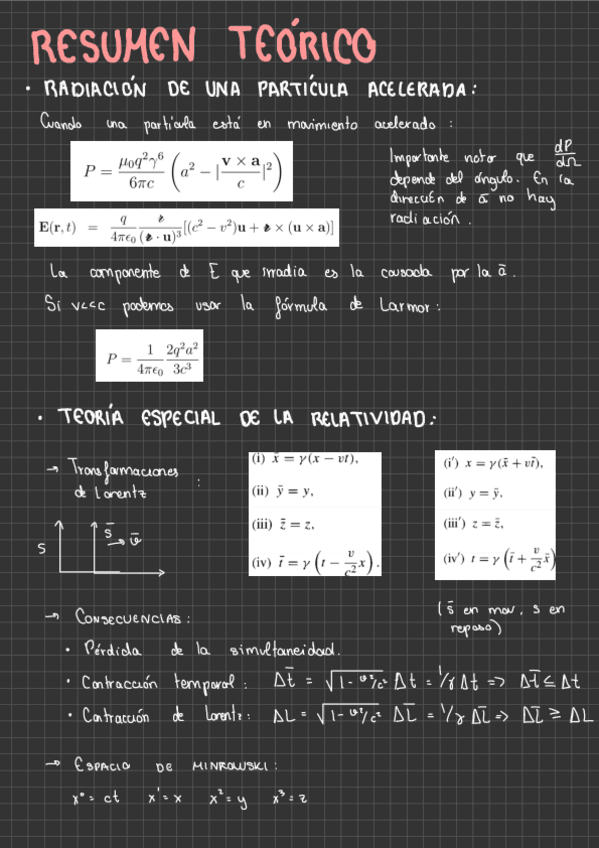 RESUMEN TEÓRICO
· RADIACIÓN DE UNA PARTÍCULA ACELERADA:
Cuando una partícula está en movimiento acelerado:
P = μ₀q²γ⁶/6πc (a² − |v × a/c|²)
Importante notar que dP/dΩ
depende del ángulo. En la
dirección de ā no hay
radiación.
E(r, t) = q/4πϵ₀ 𝓇/(𝓇 · u)³ [(c² − v²)u + 𝓇 × (u × a)]
La componente de E que irradia es la causada por la ā.
Si v<<c podemos usar la fórmula de Larmor:
P = 1/4πϵ₀ 2q²a²/3c³
· TEORÍA ESPECIAL DE LA RELATIVIDAD:
→ Transformaciones
de Lorentz :
(i) x̄ = γ(x − vt),
(ii) ȳ = y,
(iii) z̄ = z,
(iv) t̄ = γ(t − v/c² x).
(i′) x = γ(x̄ + vt̄),
(ii′) y = ȳ,
(iii′) z = z̄,
(iv′) t = γ(t̄ + v/c² x̄)
S
S̄
→ v̄
(S̄ en mov, S en
reposo)
→ CONSECUENCIAS:
· Pérdida de la simultaneidad.
· Contracción temporal: Δt̄ = √(1 - v²/c²) Δt = 1/γ Δt => Δt̄ ≤ Δt
· Contracción de Lorentz: ΔL = √(1 - v²/c²) ΔL̄ = 1/γ ΔL̄ => ΔL̄ ≥ ΔL
→ ESPACIO DE MINKOWSKI:
x⁰ = ct x¹ = x x² = y x³ = z